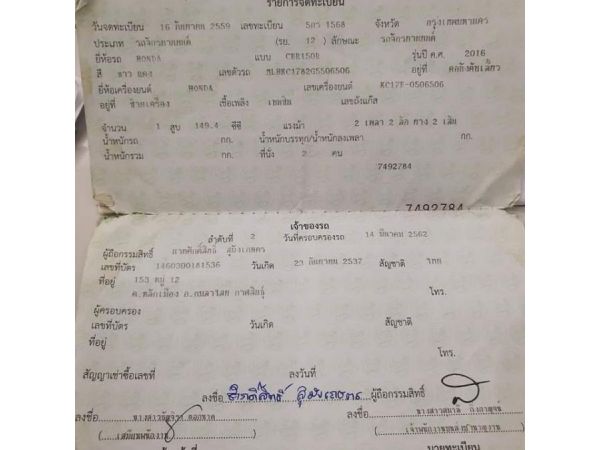 รายการจดทะเบียน
วันจดทะเบียน 16 กันยายน 2559 เลขทะเบียน 5กร 1568 จังหวัด กรุงเทพมหานคร
ประเภท รถจักรยานยนต์ (รย. 12 ) ลักษณะ รถจักรยานยนต์
ยี่ห้อรถ HONDA แบบ CBR150R รุ่นปี ค.ศ. 2016
สี ขาว แดง เลขตัวรถ MLHKC1782G5506506 อยู่ที่ คอถังคันเลี้ยว
ยี่ห้อเครื่องยนต์ HONDA เลขเครื่องยนต์ KC17E-0506506
อยู่ที่ ซ้ายเครื่อง เชื้อเพลิง เบนซิน เลขถังแก๊ส
จำนวน 1 สูบ 149.4 ซีซี แรงม้า 2 เพลา 2 ล้อ ยาง 2 เส้น
น้ำหนักรถ กก. น้ำหนักบรรทุก/น้ำหนักลงเพลา กก.
น้ำหนักรวม กก. ที่นั่ง 2 คน
7492784
7492784
เจ้าของรถ
ลำดับที่ 2 วันที่ครอบครองรถ 14 มีนาคม 2562
ผู้ถือกรรมสิทธิ์
เลขที่บัตร 1460300181536 วันเกิด 23 กันยายน 2537 สัญชาติ ไทย
ที่อยู่ 153 หมู่ 12
ต.หลักเมือง อ.กมลาไสย กาฬสินธุ์ โทร.
ผู้ครอบครอง
เลขที่บัตร วันเกิด สัญชาติ
ที่อยู่
โทร.
สัญญาเช่าซื้อเลขที่ ลงวันที่
ลงชื่อ ผู้ถือกรรมสิทธิ์
ลงชื่อ ลงชื่อ
นายทะเบียน